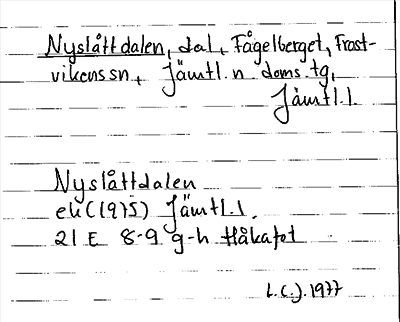 Nyslåttdalen, dal, Fågelberget, Frost-
vikens sn, Jämtl. n doms. tg,
Jämtl. l.
Nyslåttdalen
ek (1975) Jämtl. l.
21 E 8-9 g-h Håkafot
L.C.J. 1977